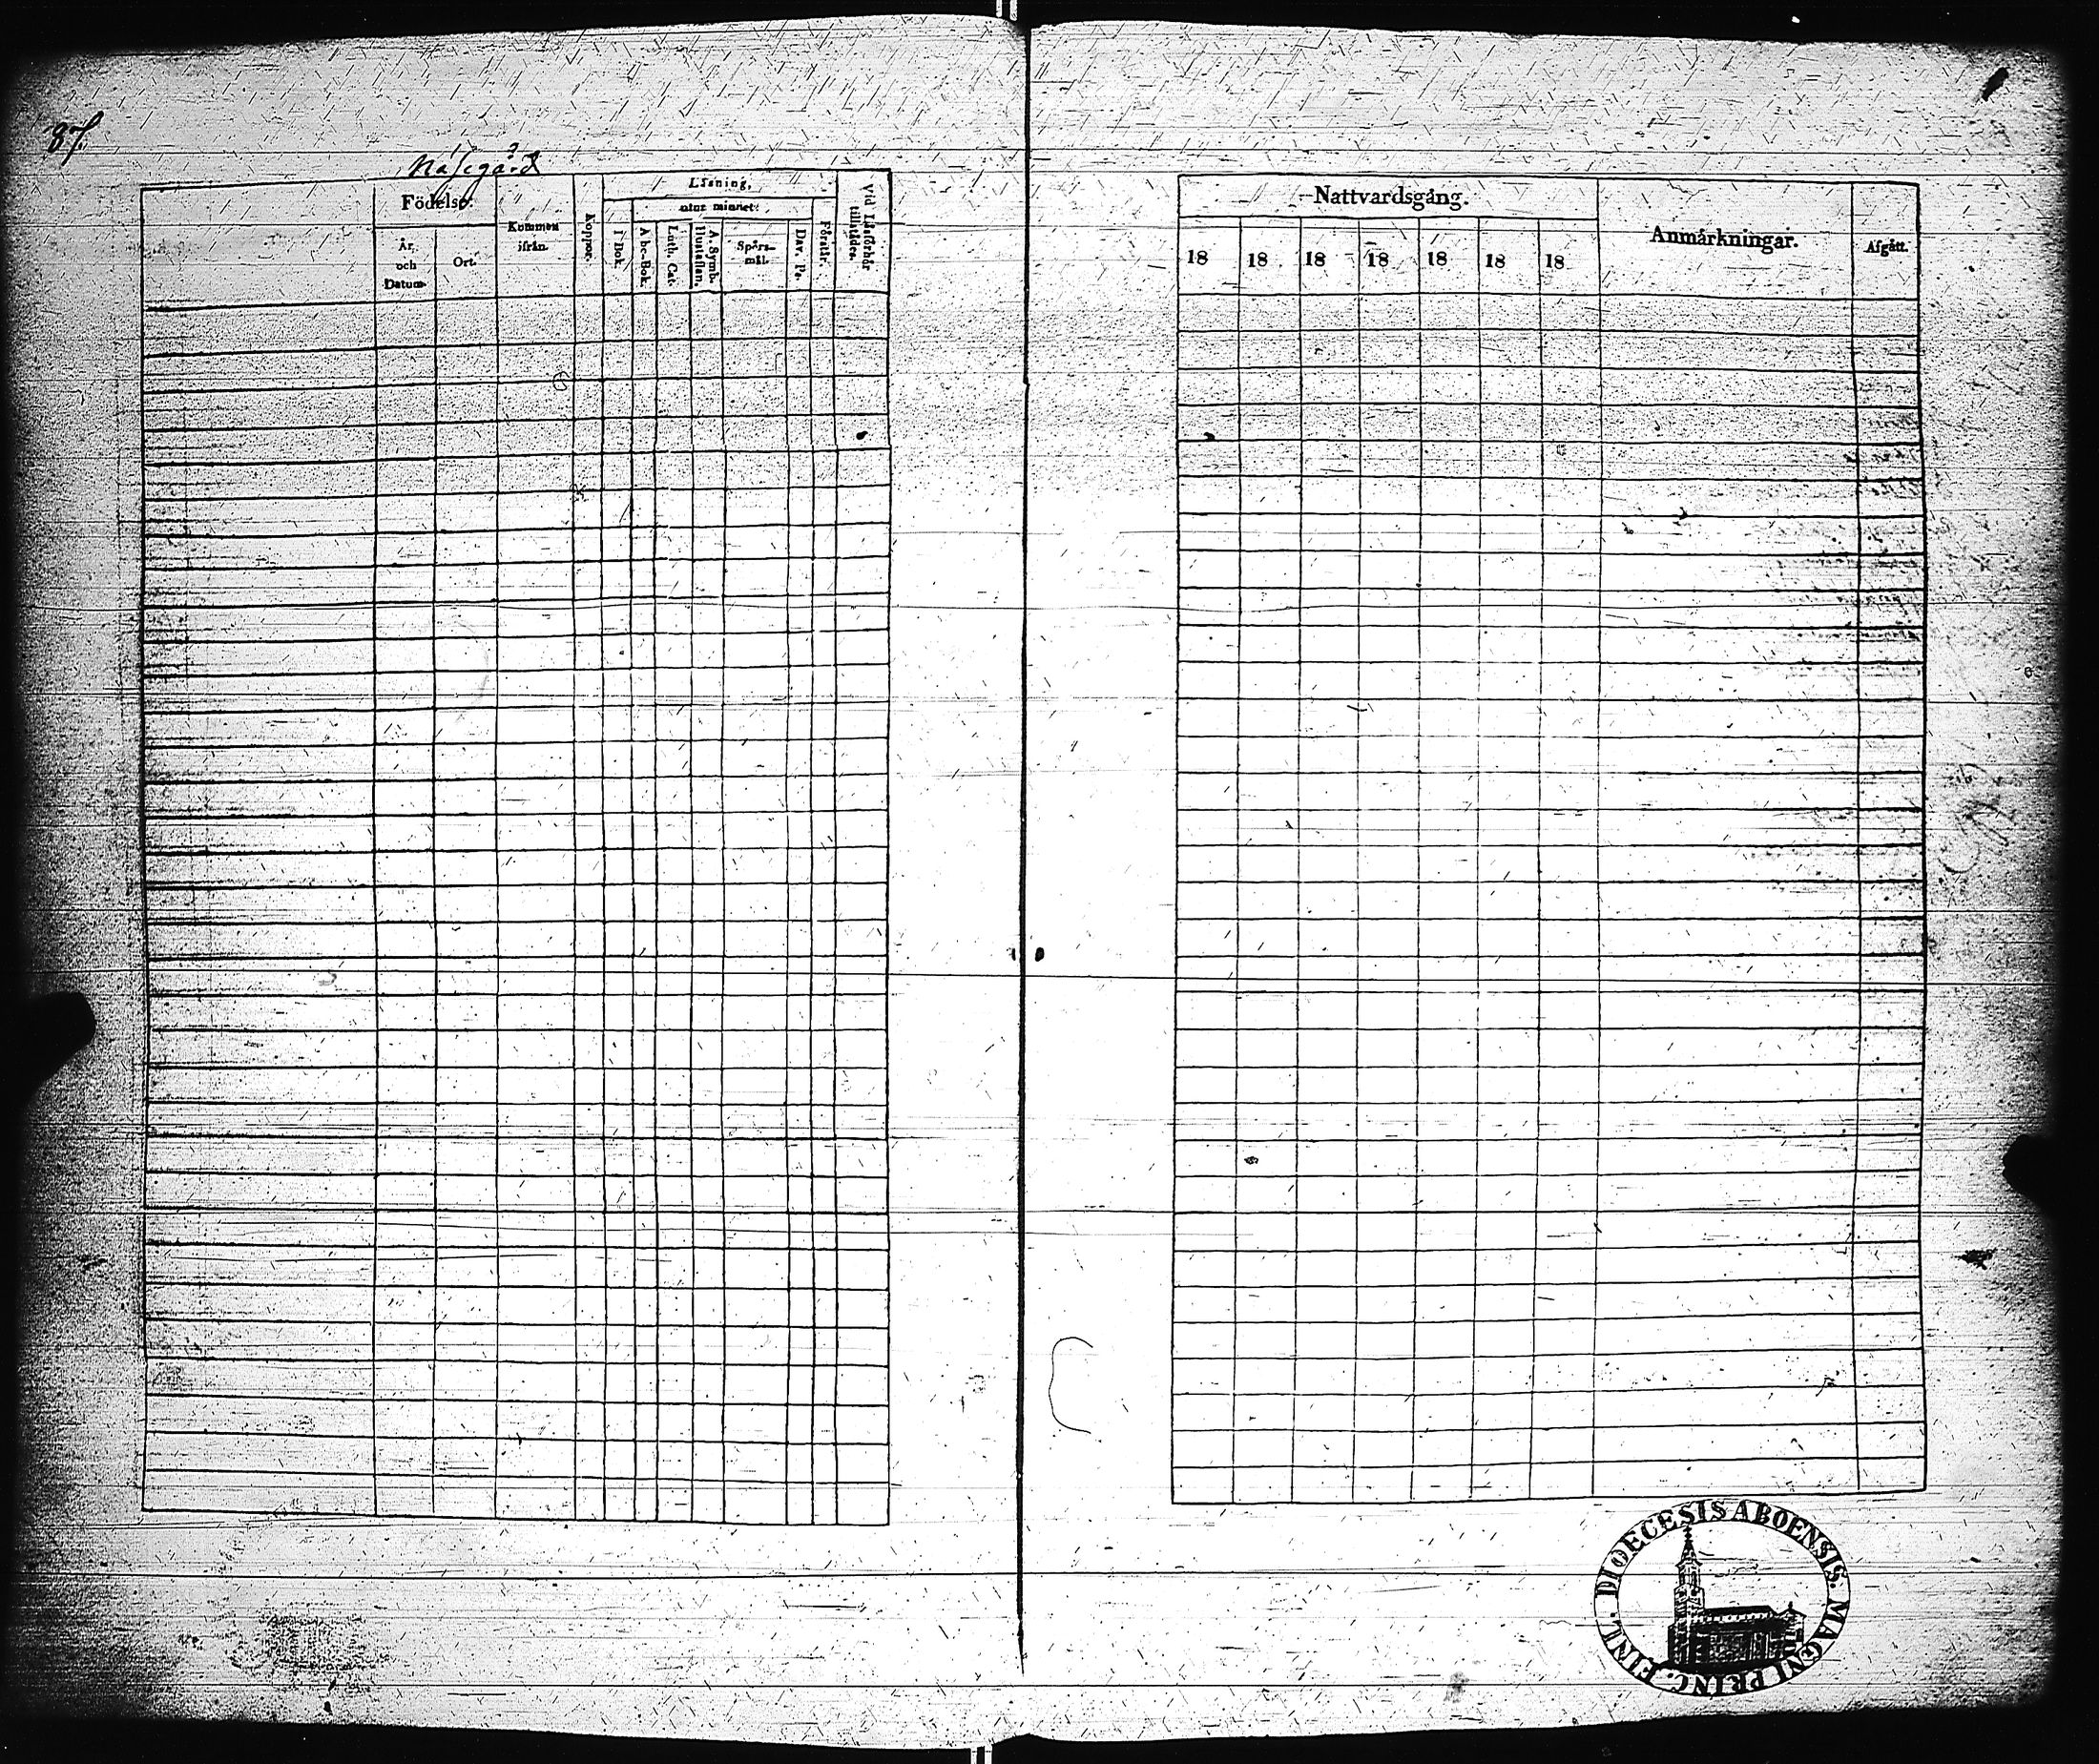 87.
Näsegård
Födelse.
År, och Datum
Ort.
Kommen ifrån.
Koppor.
Läsning,
utur minnet:
I Bok.
Abc-Bok.
Luth. Cat.
A. Symb. Hustaflan.
Spörs-mål.
Dav. Ps.
Förstår.
Vid Läsförhör tillstädes.
Nattvardsgång.
18 18 18 18 18 18 18
Anmärkningar.
Afgått.
DIOECESIS ABOENSIS. MAGNI PRINC. FINL.